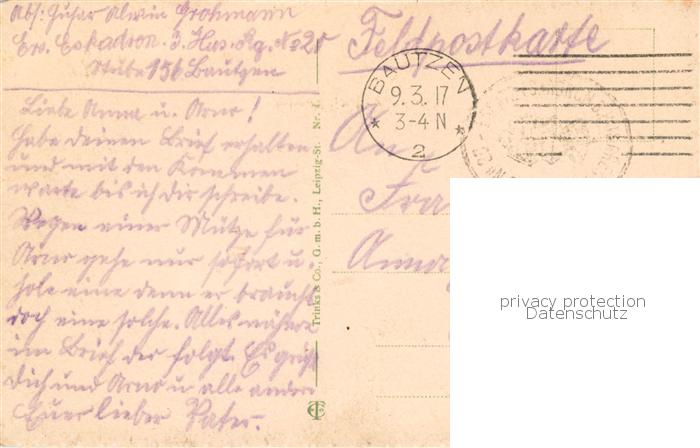 Abs: Husar Alwin Grohmann
Ers. Eskadron. 3. Hus. Rg. No 20
Stube 156 Bautzen
Liebe Anna u. Arno!
Habe deinen Brief erhalten
und mit den Kommen
warte bis ich dir schreibe.
Wegen einer Mütze für
Arno gehe nur sofort u.
hole eine denn er braucht
doch eine solche. Alles nähere
im Brief der folgt. Es grüßt
Dich und Arno u alle andern
Euer lieber Vater.
Trinks & Co., G. m. b. H., Leipzig-St. Nr. 1.
Feldpostkarte
BAUTZEN
9. 3. 17
3-4 N
* 2 *
An
Frau
Anna
privacy protection
Datenschutz